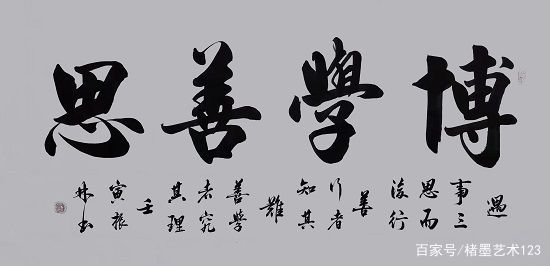 博學善思
遇
事三
思而
後行
善
行者
知其
難
善學
者究
其理
壬
寅振
林书
百家号/楮墨艺术123